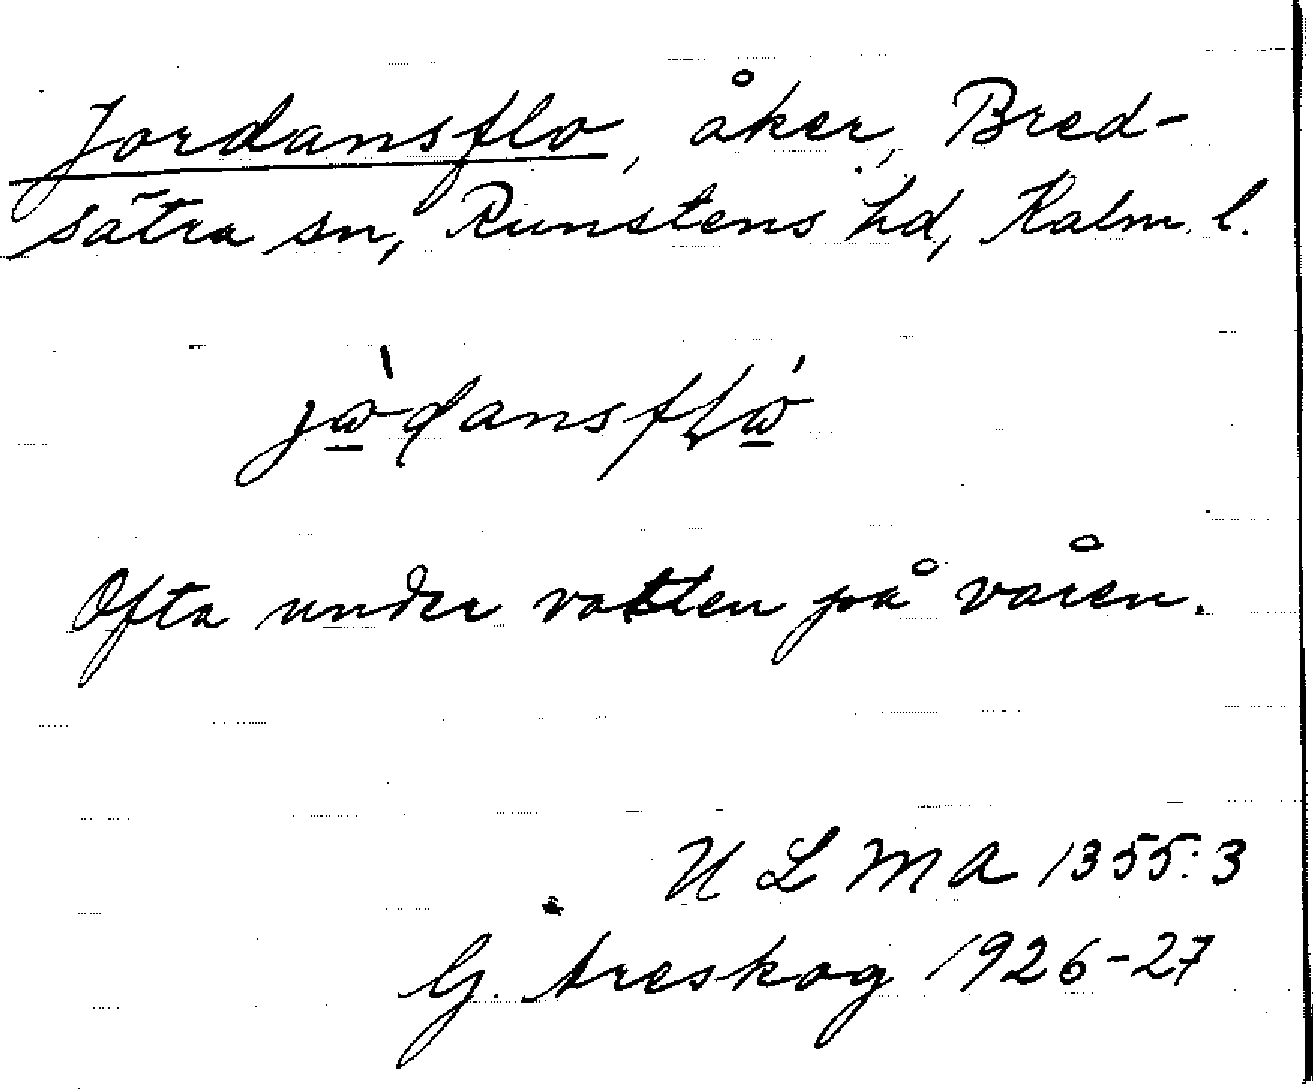 Jordansflo, åker, Bred-
sätra sn, Runstens hd, Kalm. l.
Ofta under vatten på våren.
ULMA 1355:3
G. Areskog 1926-27